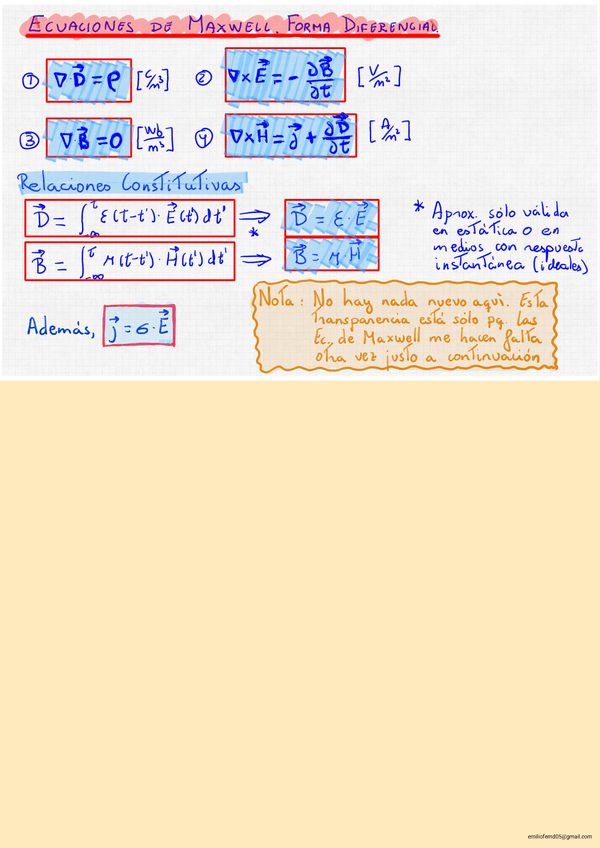 ECUACIONES DE MAXWELL. FORMA DIFERENCIAL.
① ∇·D⃗ = ρ [C/m³] ② ∇×E⃗ = - ∂B⃗/∂t [V/m²]
③ ∇·B⃗ = 0 [Wb/m³] ④ ∇×H⃗ = j⃗ + ∂D⃗/∂t [A/m²]
Relaciones Constitutivas
D⃗ = ∫_{-∞}^{t} ε(t-t')·E⃗(t')dt' ⟹ * D⃗ = ε·E⃗
B⃗ = ∫_{-∞}^{t} μ(t-t')·H⃗(t')dt' ⟹ B⃗ = μ·H⃗
* Aprox. sólo válida
en estática o en
medios con respuesta
instantánea (ideales)
Además, j⃗ = σ·E⃗
Nota: No hay nada nuevo aquí. Esta
transparencia está sólo pq. las
Ec. de Maxwell me hacen falta
otra vez justo a continuación
emiliofernd05@gmail.com